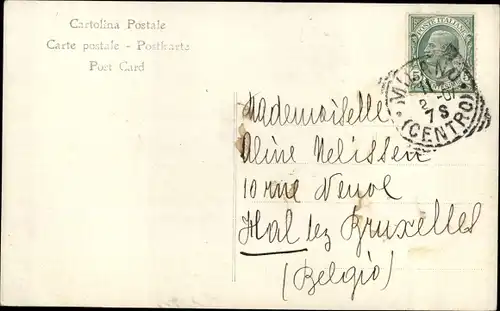 Cartolina Postale
Carte postale - Postkarte
Port Card
POSTE ITALIANE
MILANO
7 S
(CENTRO)
Mademoiselle
Aline Nelissen
10 rue
Hal lez Bruxelles
(Belgio)